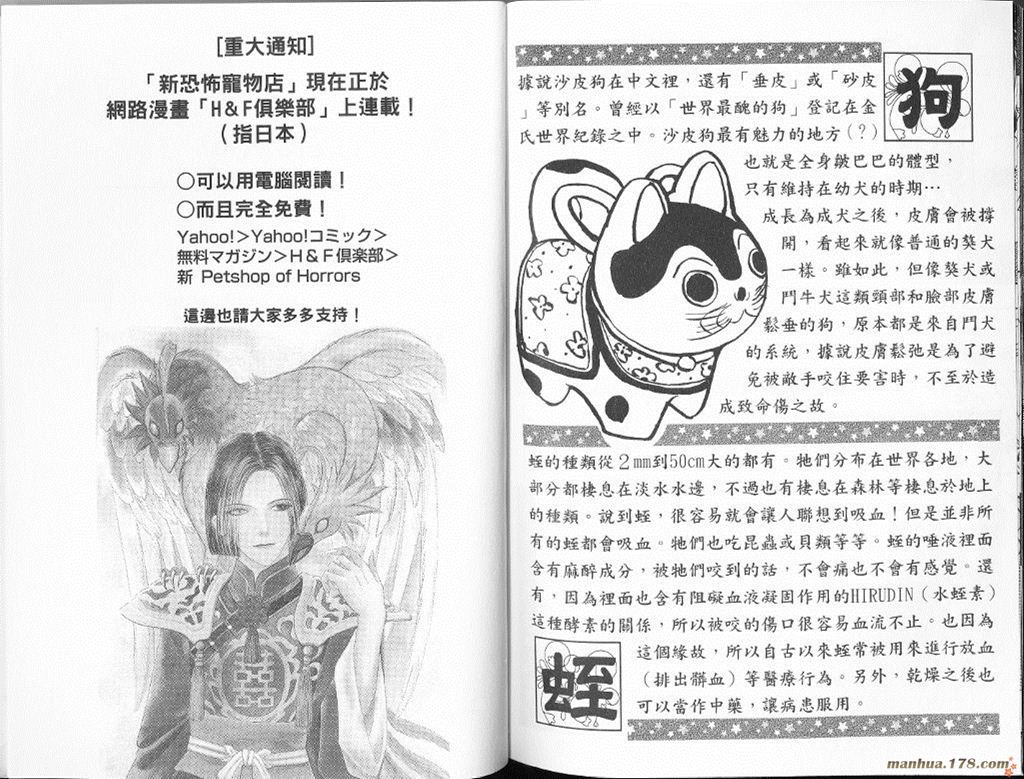 [重大通知]
「新恐怖寵物店」現在正於
網路漫畫「H&F俱樂部」上連載！
（指日本）
○可以用電腦閱讀！
○而且完全免費！
Yahoo!＞Yahoo!コミック＞
無料マガジン＞H＆F倶楽部＞
新 Petshop of Horrors
這邊也請大家多多支持！
狗
據說沙皮狗在中文裡，還有「垂皮」或「砂皮
」等別名。曾經以「世界最醜的狗」登記在金
氏世界紀錄之中。沙皮狗最有魅力的地方（？）
也就是全身皺巴巴的體型，
只有維持在幼犬的時期…
成長為成犬之後，皮膚會被撐
開，看起來就像普通的獒犬
一樣。雖如此，但像獒犬或
鬥牛犬這類頸部和臉部皮膚
鬆垂的狗，原本都是來自鬥犬
的系統，據說皮膚鬆弛是為了避
免被敵手咬住要害時，不至於造
成致命傷之故。
蛭的種類從2mm到50cm大的都有。牠們分布在世界各地，大
部分都棲息在淡水水邊，不過也有棲息在森林等棲息於地上
的種類。說到蛭，很容易就會讓人聯想到吸血！但是並非所
有的蛭都會吸血。牠們也吃昆蟲或貝類等等。蛭的唾液裡面
含有麻醉成分，被牠們咬到的話，不會痛也不會有感覺。還
有，因為裡面也含有阻礙血液凝固作用的HIRUDIN（水蛭素）
這種酵素的關係，所以被咬的傷口很容易血流不止。也因為
這個緣故，所以自古以來蛭常被用來進行放血
（排出髒血）等醫療行為。另外，乾燥之後也
可以當作中藥，讓病患服用。
蛭
manhua.178.com